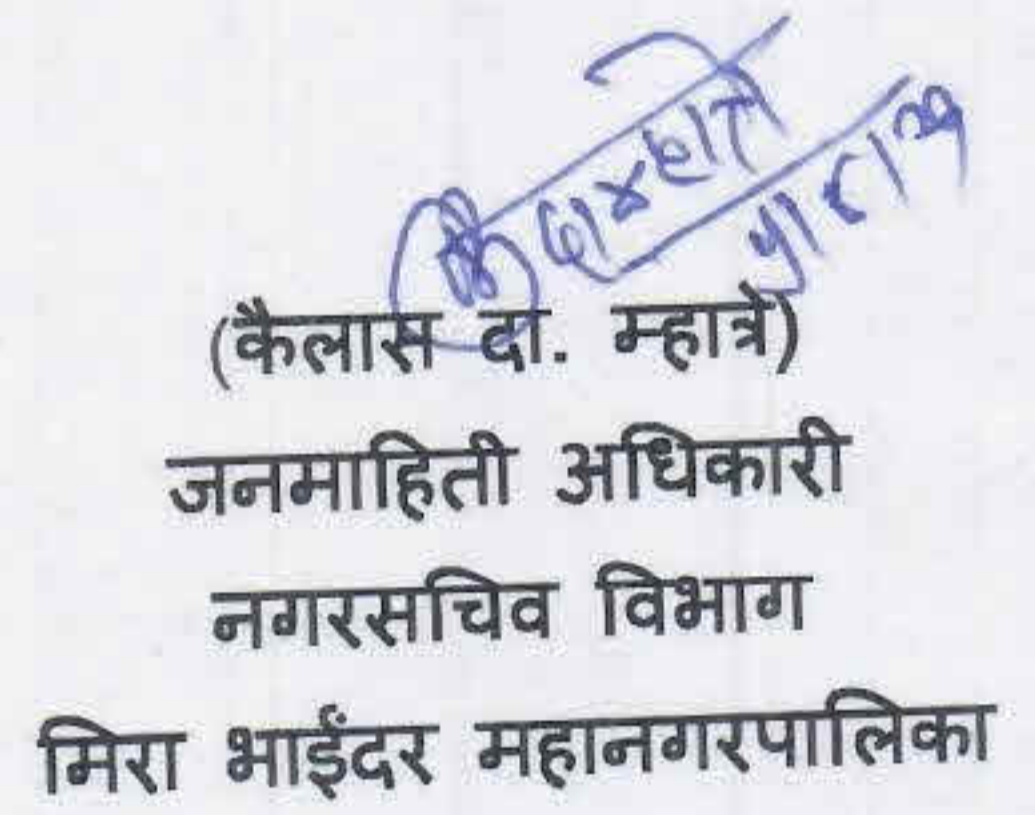 (कैलास दा. म्हात्रे)
जनमाहिती अधिकारी
नगरसचिव विभाग
मिरा भाईंदर महानगरपालिका